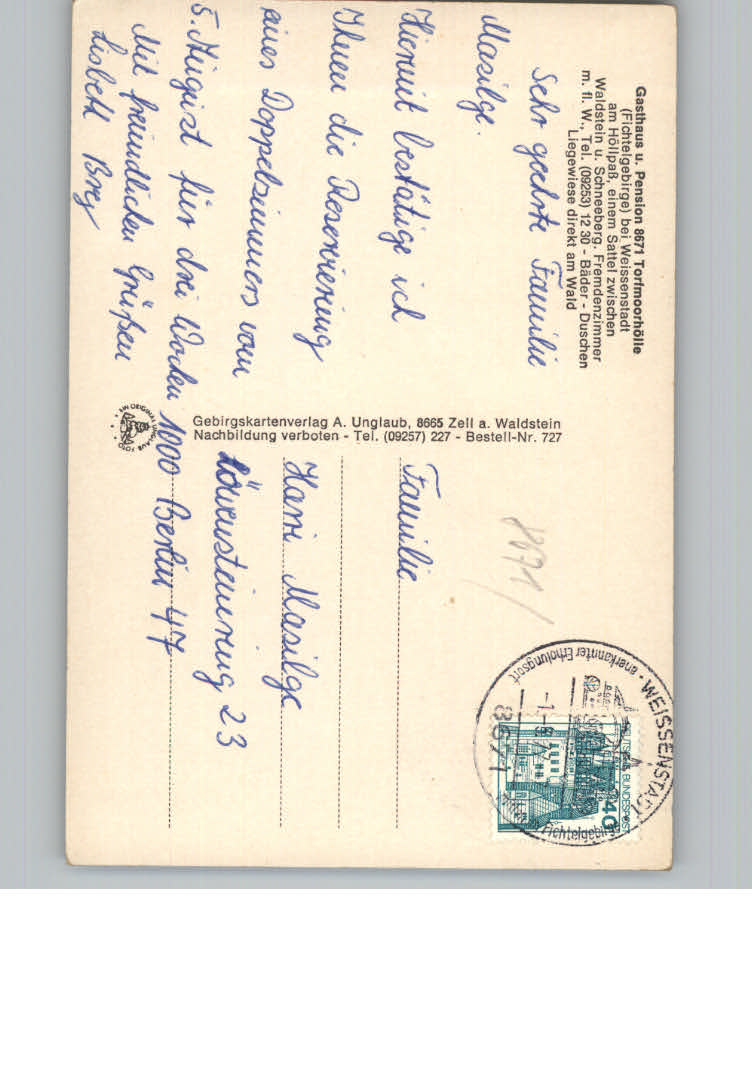 Gasthaus u. Pension 8671 Torfmoorhölle
(Fichtelgebirge) bei Weissenstadt
am Höllpaß, einem Sattel zwischen
Waldstein u. Schneeberg. Fremdenzimmer
m. fl. W., Tel. (09253) 12 30 - Bäder - Duschen
Liegewiese direkt am Wald
Sehr geehrte Familie
Masilge.
Hiermit bestätige ich
Ihnen die Reservierung
eines Doppelzimmers vom
5. August für drei Wochen
Mit freundlichen Grüßen
Lisbeth
Gebirgskartenverlag A. Unglaub, 8665 Zell a. Waldstein
Nachbildung verboten - Tel. (09257) 227 - Bestell-Nr. 727
EIN ORIGINAL UNGLAUB FOTO
8671
Familie
Hans Masilge
Löwensteinring 23
1000 Berlin 47
WEISSENSTADT
anerkannter Erholungsort
8671
Fichtelgebirge
DEUTSCHE BUNDESPOST
40